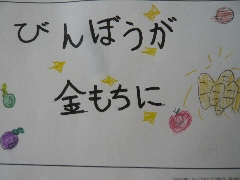 びんぼうが
金もちに